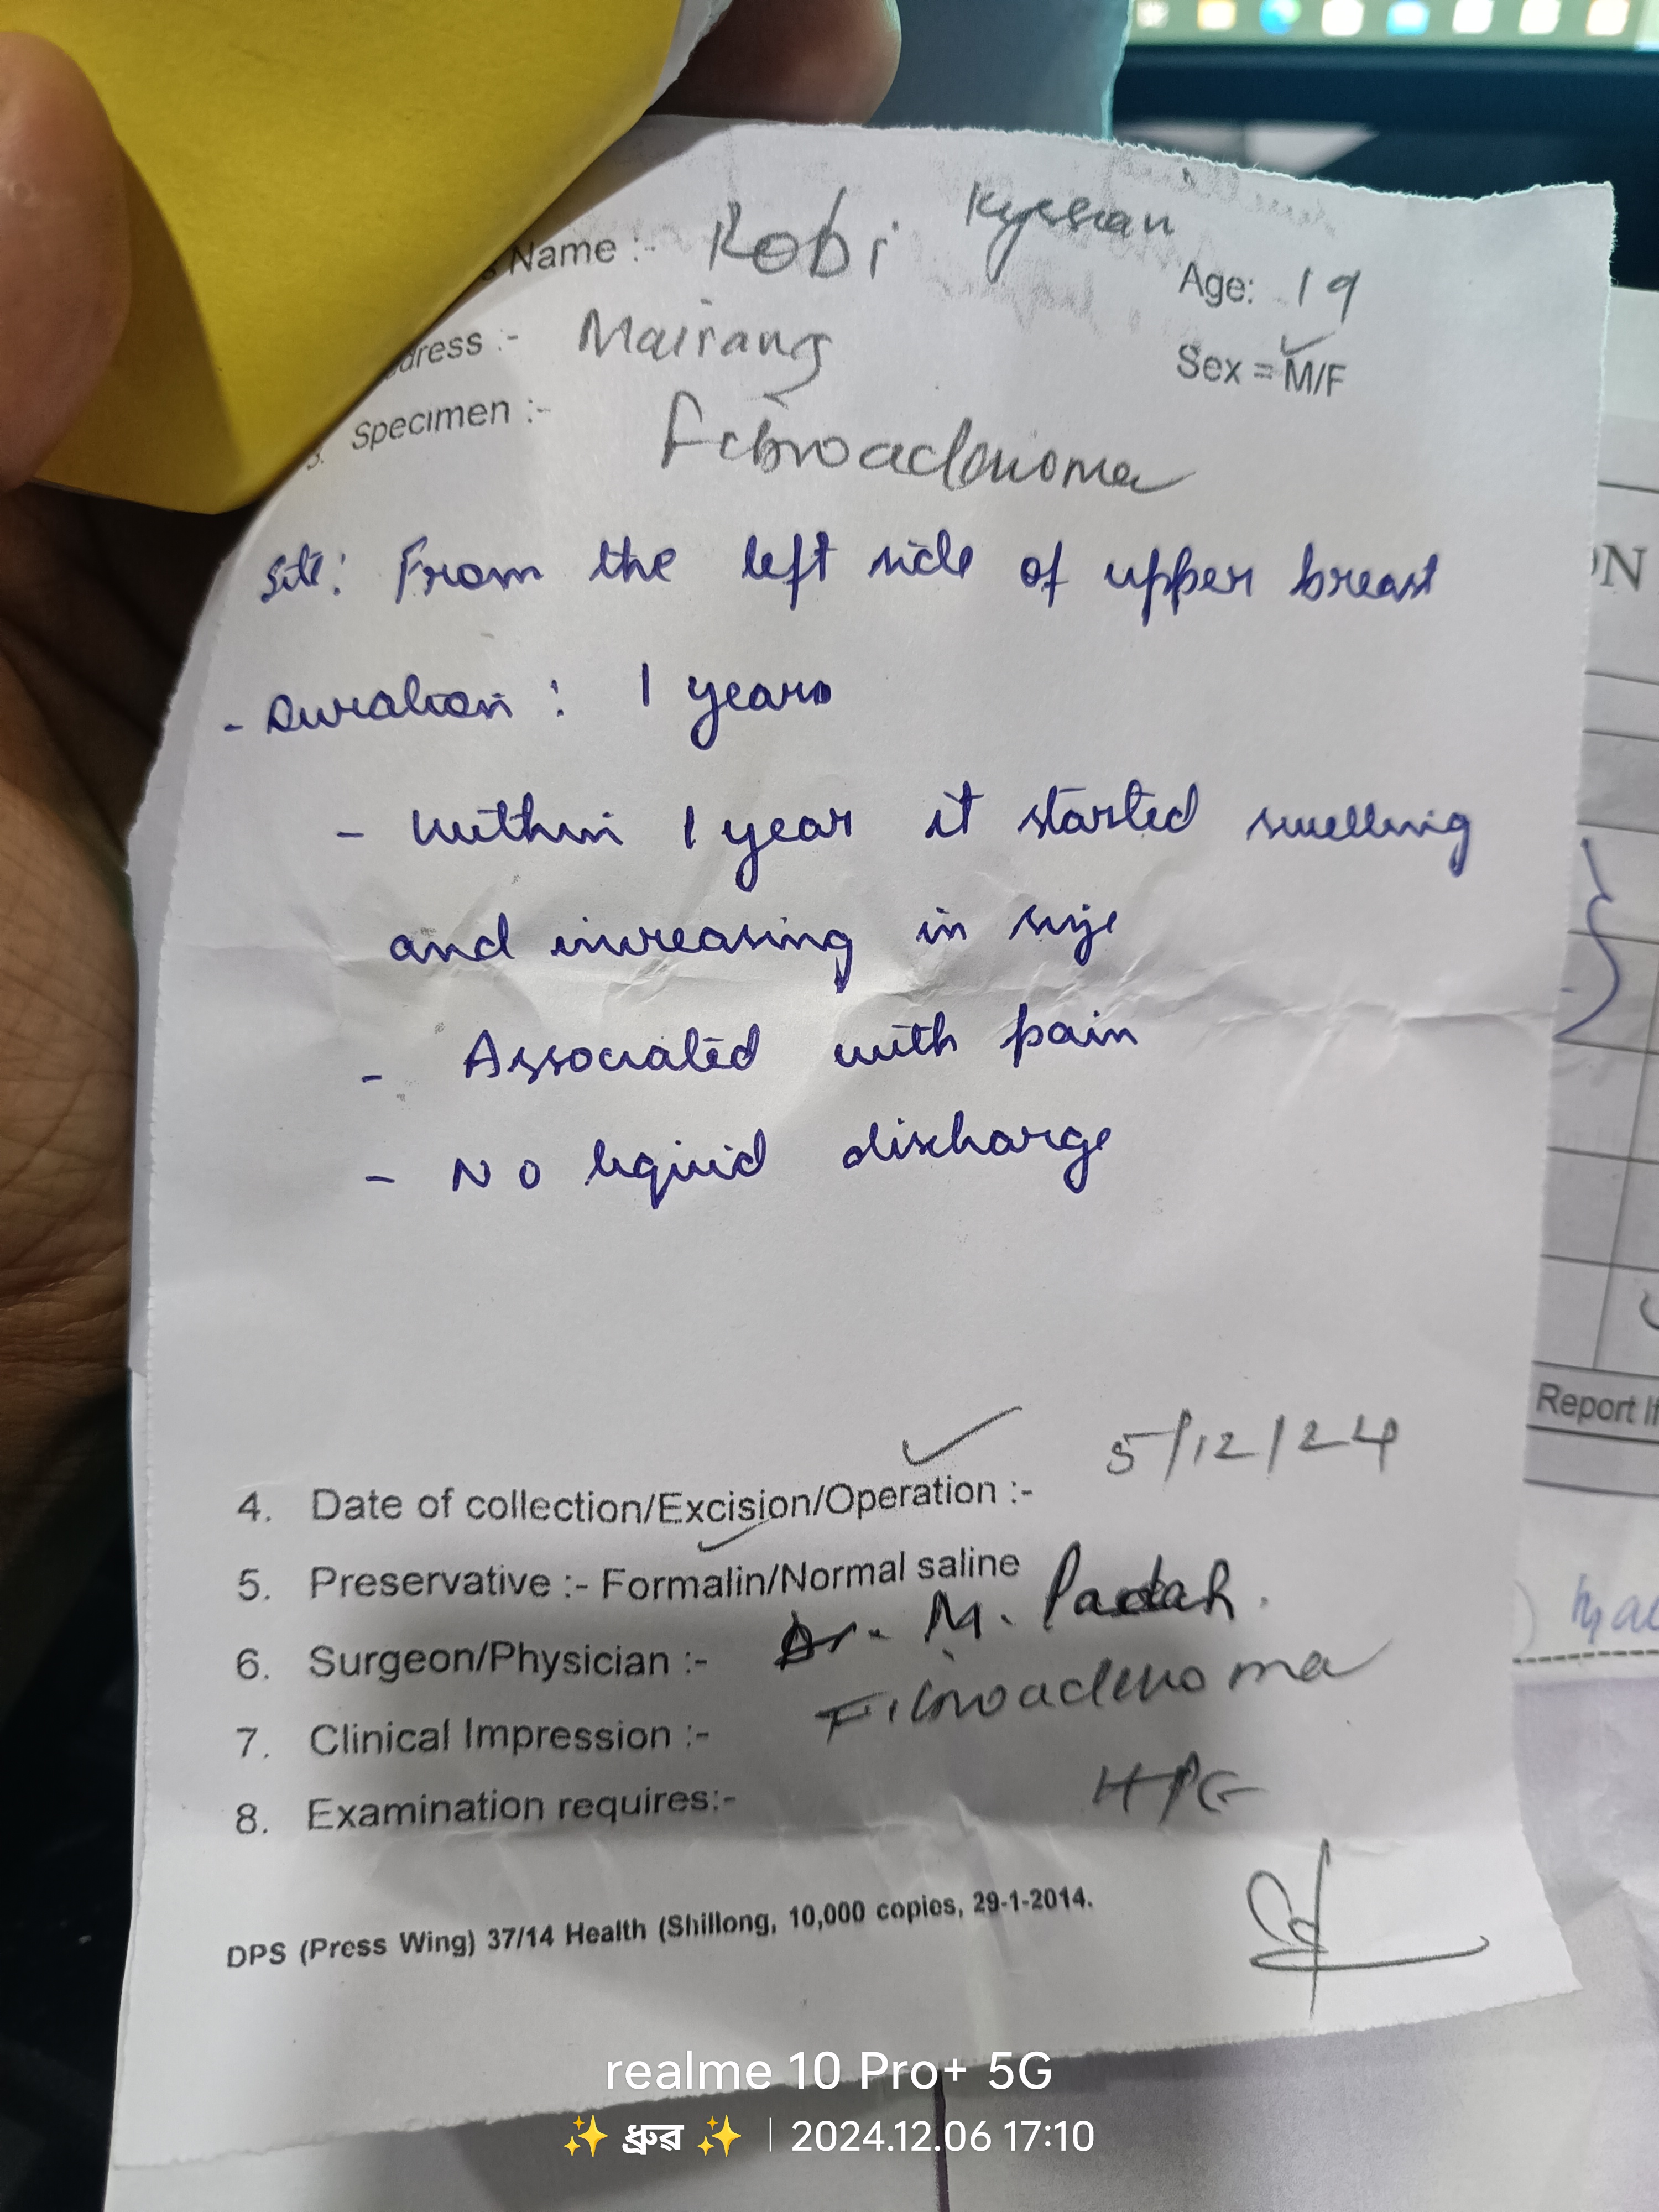 Name :- Robi Kyrsian
Age: 19
dress :- Mairang
Sex = M/F
3. Specimen :- Fibroadenoma
Site: From the left side of upper breast
- Duration : 1 years
- Within 1 year it started swelling
and increasing in size
- Associated with pain
- No liquid discharge
4. Date of collection/Excision/Operation :- 5/12/24
5. Preservative :- Formalin/Normal saline
6. Surgeon/Physician :- Dr. M. Padah.
7. Clinical Impression :- Fibroadenoma
8. Examination requires:- HPE
DPS (Press Wing) 37/14 Health (Shillong, 10,000 copies, 29-1-2014.
ON
Report If
realme 10 Pro+ 5G
✨ ধ্ৰুৱ ✨ | 2024.12.06 17:10